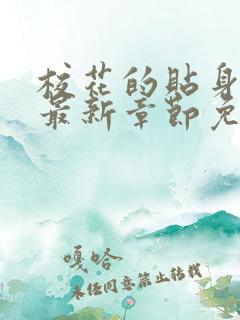 校花的贴身
最新章节免
嘎哈
未经同意禁止转载